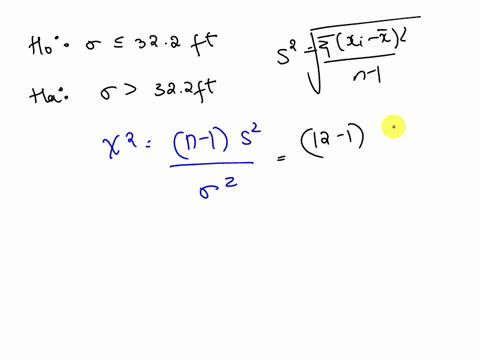 H₀: σ ≤ 32.2 ft
Ha: σ > 32.2 ft
s² = √(Σ(xi - x̄)²/(n-1))
χ² = (n-1) s²/σ² = (12-1)